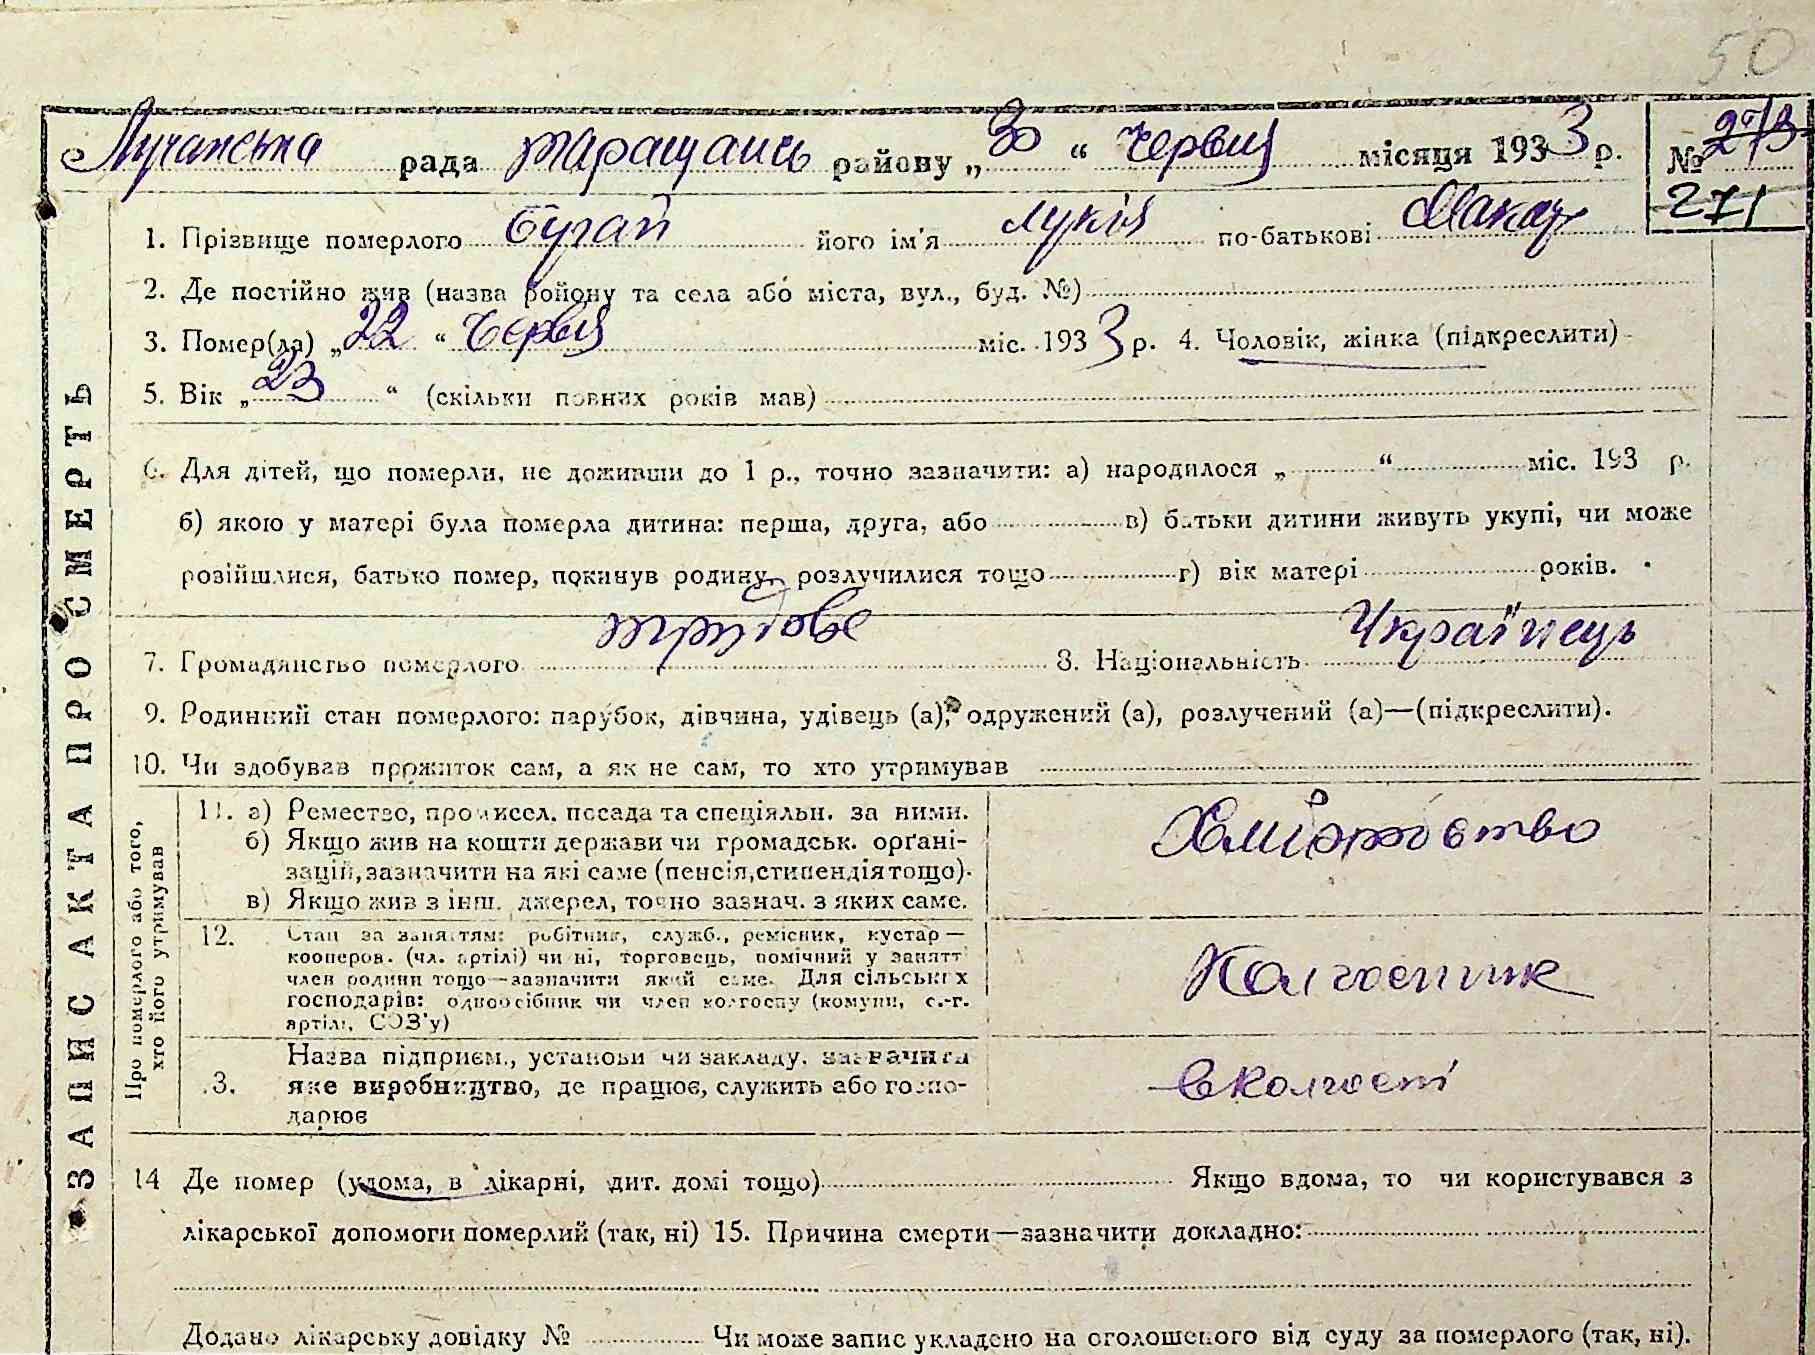 50
Лучанська рада Таращансь району „30“ Червня місяця 1933 р. № 273
271
1. Прізвище померлого Бугай його ім'я Лукія по-батькові Макар
2. Де постійно жив (назва району та села або міста, вул., буд. №)
3. Помер(ла) „22“ Червня міс. 1933 р. 4. Чоловік, жінка (підкреслити)
5. Вік „23“ (скільки повних років мав)
6. Для дітей, що померли, не доживши до 1 р., точно зазначити: а) народилося „ “ міс. 193 р.
б) якою у матері була померла дитина: перша, друга, або в) батьки дитини живуть укупі, чи може
розійшлися, батько помер, покинув родину, розлучилися тощо г) вік матері років.
7. Громадянство померлого трудове 8. Національність Українець
9. Родинний стан померлого: парубок, дівчина, удівець (а), одружений (а), розлучений (а)—(підкреслити).
10. Чи здобував прожиток сам, а як не сам, то хто утримував
ЗАПИС АКТА ПРО СМЕРТЬ
Про померлого або того,
хто його утримував
11. а) Ремество, промисел. посада та спеціяльн. за ними.
б) Якщо жив на кошти держави чи громадськ. орґані-
зацій, зазначити на які саме (пенсія, стипендія тощо).
в) Якщо жив з інш. джерел, точно зазнач. з яких саме.
Хліборобство
12. Стан за заняттям: робітник, служб., ремісник, кустар—
кооперов. (чл. артілі) чи ні, торговець, помічний у занятті
член родини тощо—зазначити який саме. Для сільських
господарів: одноосібник чи член колгоспу (комуни, с.-г.
артілі, СОЗ'у)
Колгоспник
13. Назва підприєм., установи чи закладу, зазначити
яке виробництво, де працює, служить або госпо-
дарює
В колгоспі
14 Де помер (удома, в лікарні, дит. домі тощо) Якщо вдома, то чи користувався з
лікарської допомоги померлий (так, ні) 15. Причина смерти—зазначити докладно:
Додано лікарську довідку № Чи може запис укладено на оголошеного від суду за померлого (так, ні).